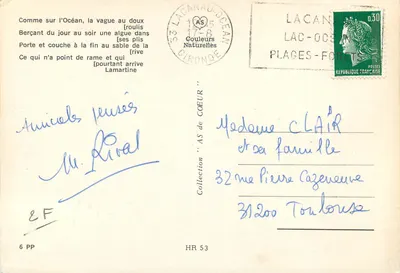 Comme sur l'Océan, la vague au doux
[roulis
Berçant du jour au soir une algue dans
[ses plis
Porte et couche à la fin au sable de la
[rive
Ce qui n'a point de rame et qui
[pourtant arrive
Lamartine
AS
Couleurs
Naturelles
33 LACANAU-OCEAN
GIRONDE
LACAN
LAC-OC
PLAGES-FO
0,30
POSTES
REPUBLIQUE FRANÇAISE
Amicales pensées
M. Rival
EF
6 PP
Collection "AS de CŒUR"
HR 53
Madame CLAIR
et sa famille
32 rue Pierre Cazeneuve
31200 Toulouse